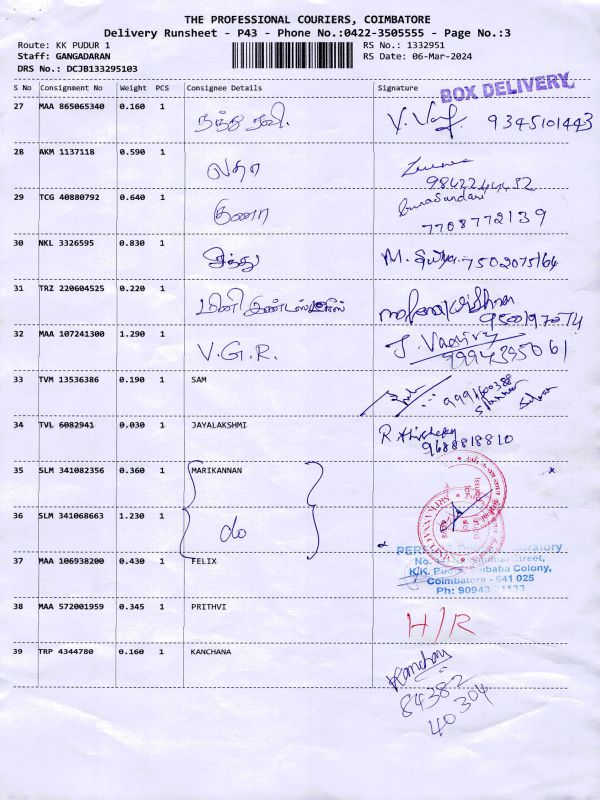 THE PROFESSIONAL COURIERS, COIMBATORE
Delivery Runsheet - P43 - Phone No.:0422-3505555 - Page No.:3
Route: KK PUDUR 1 RS No.: 1332951
Staff: GANGADARAN RS Date: 06-Mar-2024
DRS No.: DCJB133295103
S No Consignment No Weight PCS Consignee Details Signature
BOX DELIVERY
27 MAA 865065340 0.160 1 நந்த ரவி. 9345101443
28 AKM 1137118 0.590 1 லதா
9842244432
29 TCG 40880792 0.640 1 குணா GunaSundari
7708772139
30 NKL 3326595 0.830 1 சித்து M. 7502075164
31 TRZ 220604525 0.220 1 மினி
32 MAA 107241300 1.290 1 V.G.R. J.
9994395061
33 TVM 13536386 0.190 1 SAM
34 TVL 6082941 0.030 1 JAYALAKSHMI R
9688818810
35 SLM 341082356 0.360 1 MARIKANNAN
36 SLM 341068663 1.230 1 do
37 MAA 106938200 0.430 1 FELIX
Street,
K.K. Baba Colony,
Coimbatore - 641 025
Ph: 90943 1133
38 MAA 572001959 0.345 1 PRITHVI H/R
39 TRP 4344780 0.160 1 KANCHANA Kanchana
84382
40304